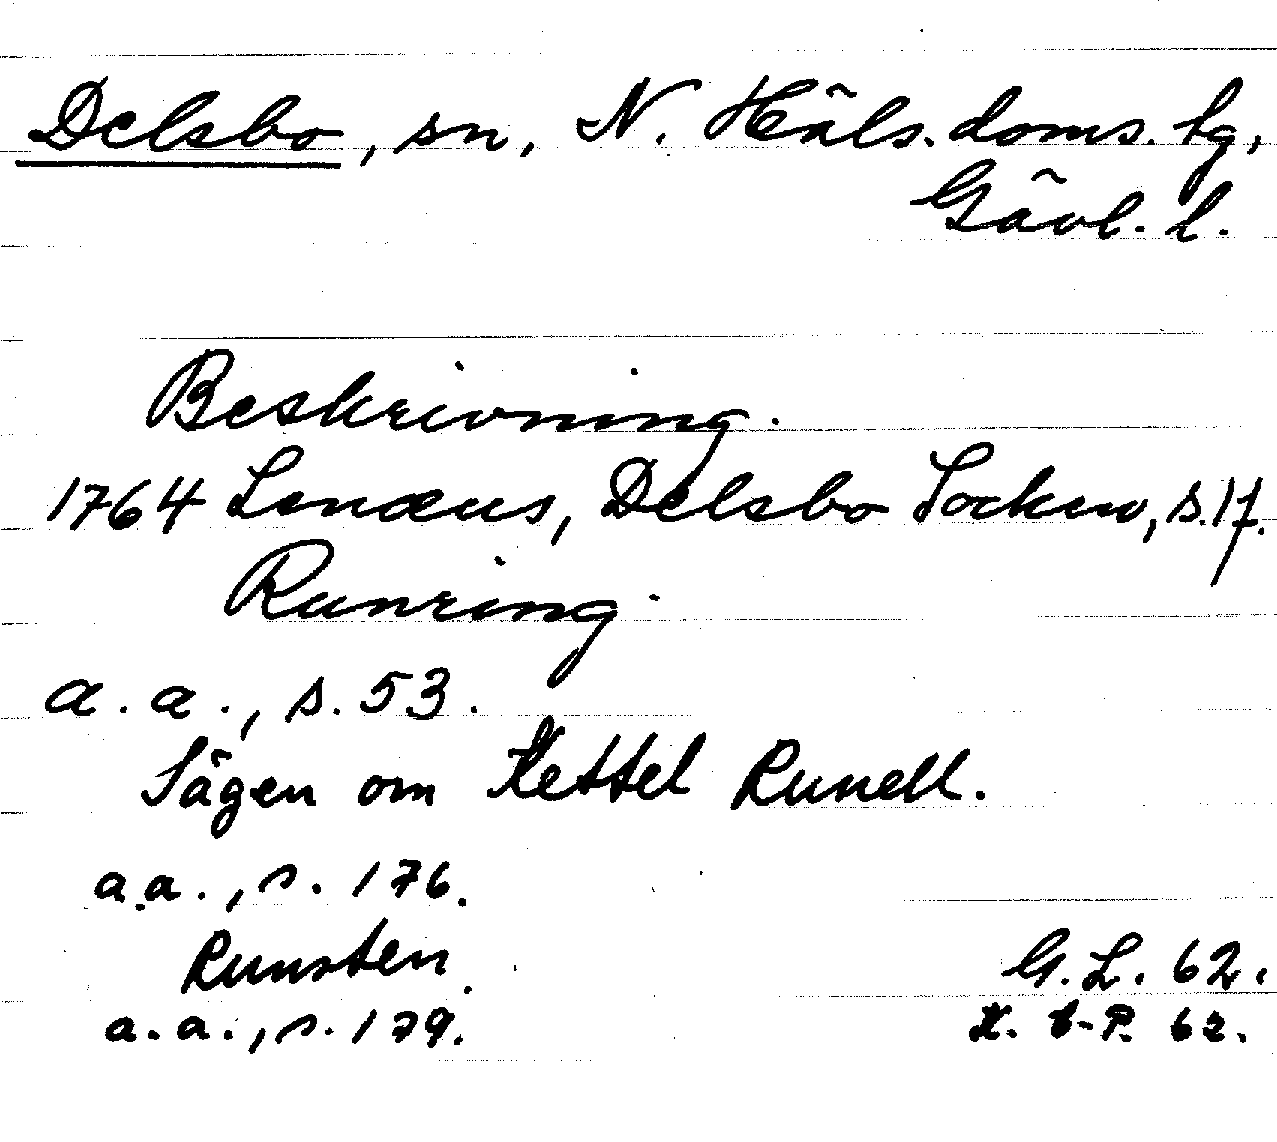 Delsbo, sn, N. Häls. doms. lg,
Gävl. l.
Beskrivning.
1764 Lenæus, Delsbo Socken, s. 17.
Runring.
a. a., s. 53.
Sägen om Kettel Runell.
a.a., s. 176.
Runsten.
a.a., s. 179.
G.L. 62.
K. E-P. 62.